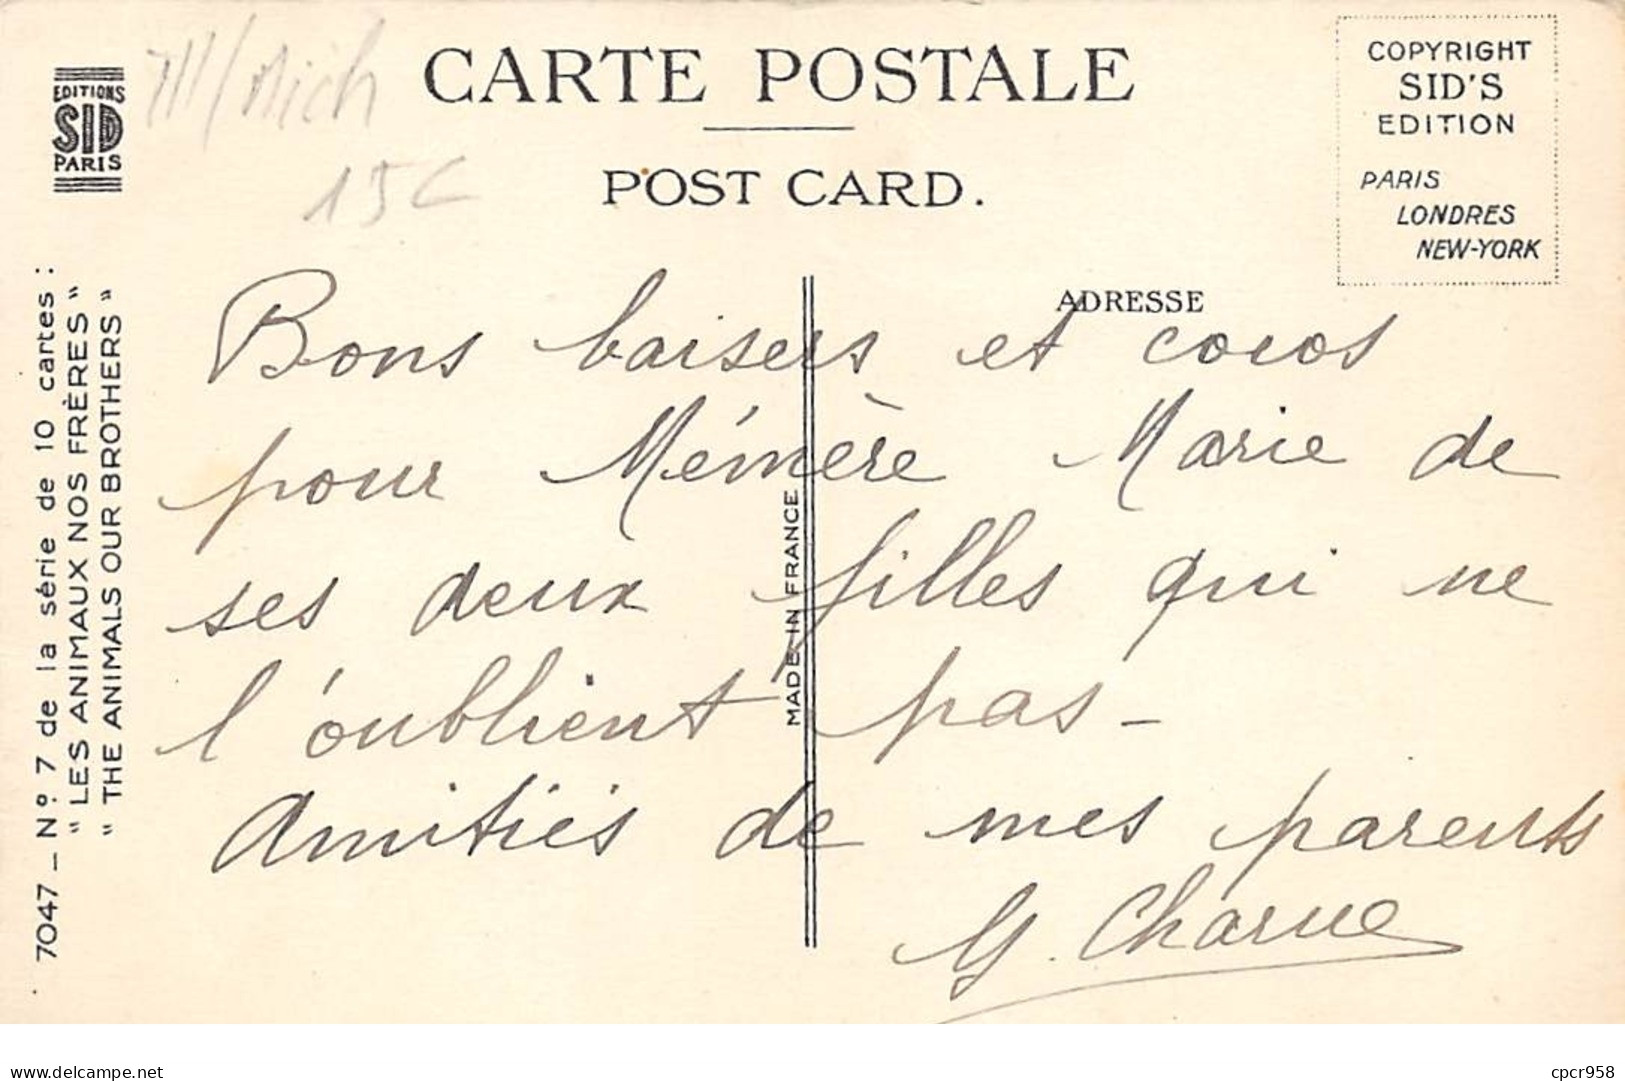 EDITIONS
SID
PARIS
15c
CARTE POSTALE
POST CARD.
COPYRIGHT
SID'S
EDITION
PARIS
LONDRES
NEW-YORK
7047 — N° 7 de la série de 10 cartes :
" LES ANIMAUX NOS FRÈRES "
" THE ANIMALS OUR BROTHERS "
MADE IN FRANCE
ADRESSE
Bons baisers et cocos
pour Mémère Marie de
ses deux filles qui ne
l'oublient pas -
Amitiés de mes parents
G. Charue
Ma collection sur Delcampe
cpcr958